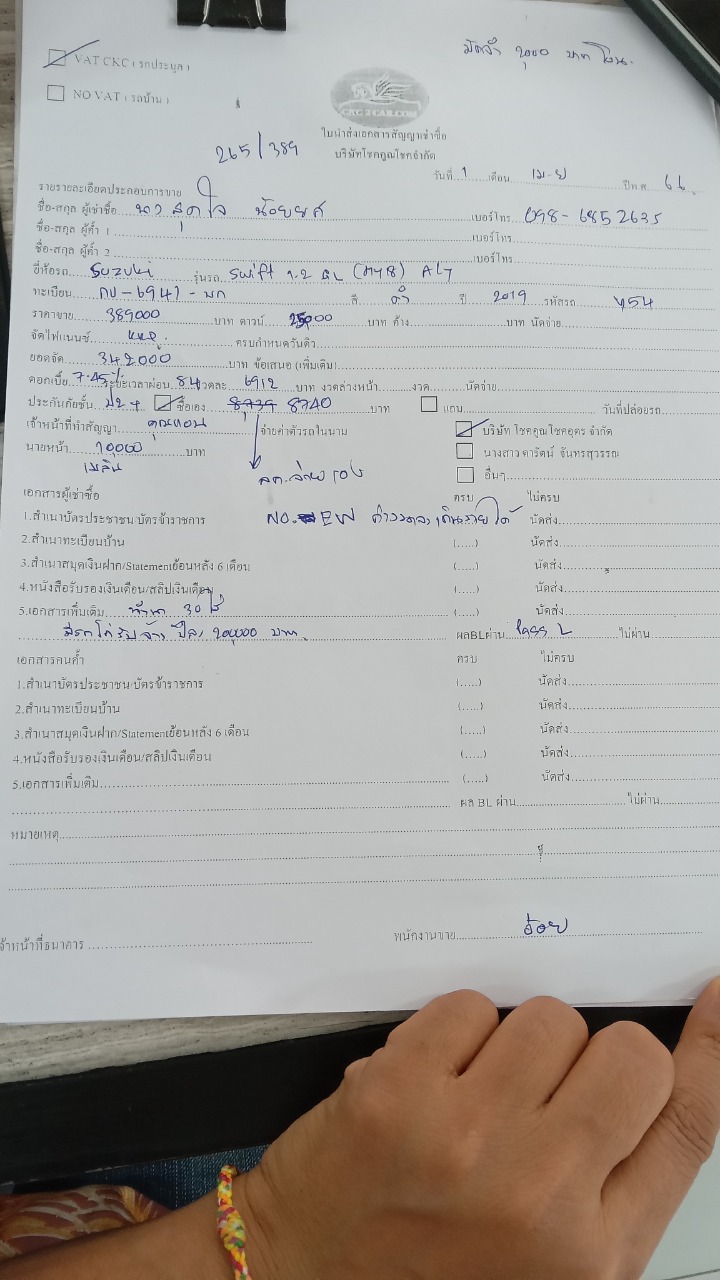 มัดจำ 2,000 บาท โอน.
VAT CKC ( รถประมูล )
NO VAT ( รถบ้าน )
CKC 2 CAR.COM
265/389
ใบนำส่งเอกสารสัญญาเช่าซื้อ
บริษัทโชคคูณโชคจำกัด
วันที่ 1 เดือน เม-ย ปีพ.ศ. 66
รายละเอียดประกอบการขาย
ชื่อ-สกุล ผู้เช่าซื้อ นาง สุดใจ น้อยยศ เบอร์โทร 098-6852635
ชื่อ-สกุล ผู้ค้ำ 1 เบอร์โทร
ชื่อ-สกุล ผู้ค้ำ 2 เบอร์โทร
ยี่ห้อรถ Suzuki รุ่นรถ Swift 1.2 GL (MY18) A/T
ทะเบียน 6941 สี ดำ ปี 2019 รหัสรถ 454
ราคาขาย 389000 บาท ดาวน์ บาท ค้าง บาท นัดจ่าย
จัดไฟแนนซ์ KKP. ครบกำหนดวันดิว
ยอดจัด 342000 บาท ข้อเสนอ (เพิ่มเติม)
ดอกเบี้ย 7.45% ระยะเวลาผ่อน 84 งวดละ 6912 บาท งวดล่างหน้า งวด นัดจ่าย
ประกันภัยชั้น ป2+ ซื้อเอง 8739 8740 บาท แถม วันที่ปล่อยรถ
เจ้าหน้าที่ทำสัญญา คุณแอน จ่ายค่าตัวรถในนาม บริษัท โชคคูณโชคอุดร จำกัด
นายหน้า 10000 บาท นางสาว ดารัตน์ จันทรสุวรรณ
ลค.จ่ายเอง อื่นๆ
เอกสารผู้เช่าซื้อ ครบ ไม่ครบ
1.สำเนาบัตรประชาชน/บัตรข้าราชการ NO. EW นัดส่ง
2.สำเนาทะเบียนบ้าน (.....) นัดส่ง
3.สำเนาสมุดเงินฝาก/Statementย้อนหลัง 6 เดือน (.....) นัดส่ง
4.หนังสือรับรองเงินเดือน/สลิปเงินเดือน (.....) นัดส่ง
5.เอกสารเพิ่มเติม ทำนา 30 ไร่ (.....) นัดส่ง
มีรถไถรับจ้าง ปีละ 200,000 บาท. ผลBLผ่าน Pass L ไม่ผ่าน
เอกสารคนค้ำ ครบ ไม่ครบ
1.สำเนาบัตรประชาชน/บัตรข้าราชการ (.....) นัดส่ง
2.สำเนาทะเบียนบ้าน (.....) นัดส่ง
3.สำเนาสมุดเงินฝาก/Statementย้อนหลัง 6 เดือน (.....) นัดส่ง
4.หนังสือรับรองเงินเดือน/สลิปเงินเดือน (.....) นัดส่ง
5.เอกสารเพิ่มเติม (.....) นัดส่ง
ผล BL ผ่าน ไม่ผ่าน
หมายเหตุ
จ้าหน้าที่ธนาคาร พนักงานขาย อ้อย